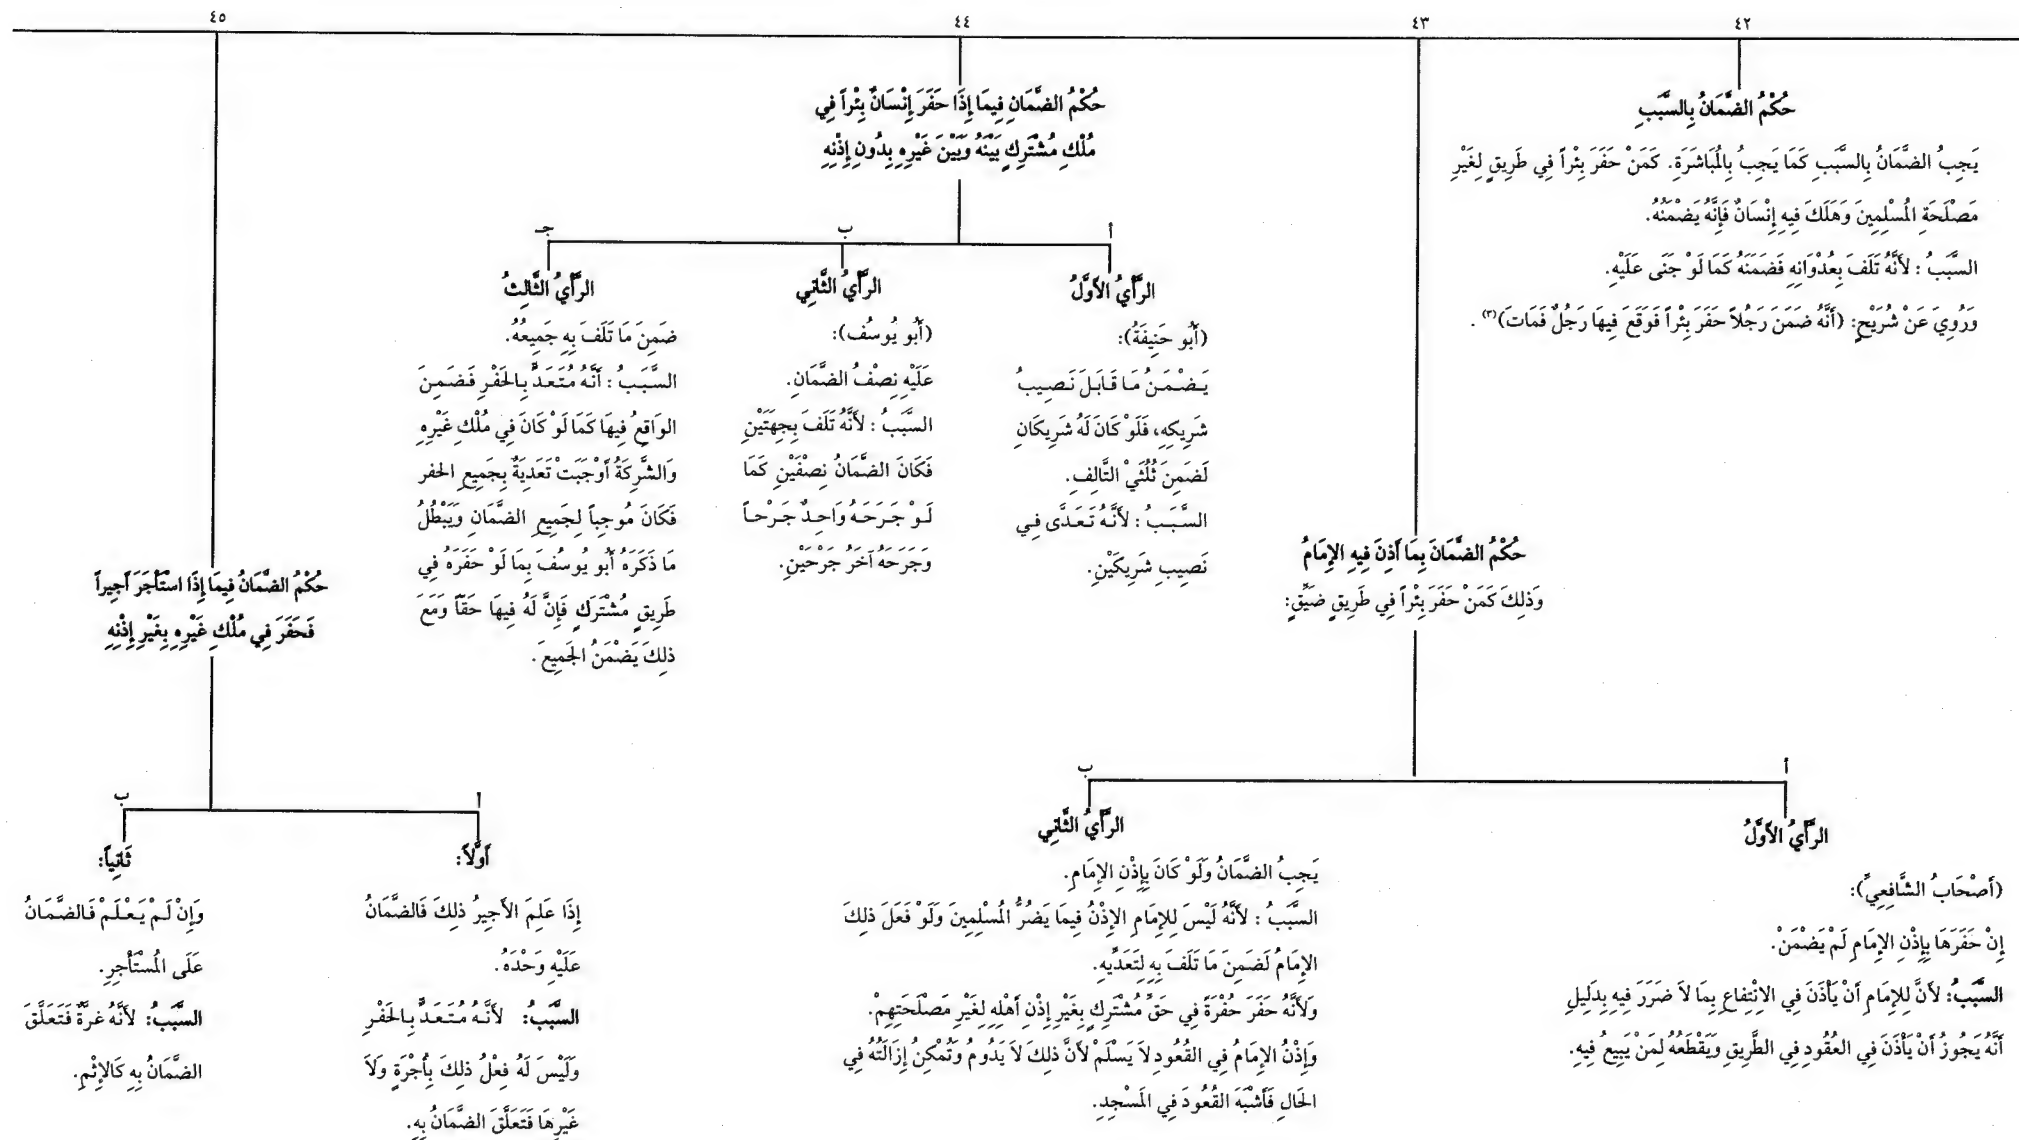 ٤٢
حُكْمُ الضَّمَانُ بِالسَّبَبِ
يَجِبُ الضَّمَانُ بِالسَّبَبِ كَمَا يَجِبُ بِالْمُبَاشَرَةِ. كَمَنْ حَفَرَ بِئْراً فِي طَرِيقٍ لِغَيْرِ
مَصْلَحَةِ الْمُسْلِمِينَ وَهَلَكَ فِيهِ إِنْسَانٌ فَإِنَّهُ يَضْمَنُهُ.
السَّبَبُ : لأَنَّهُ تَلَفَ بِعُدْوَانِهِ فَضَمَنَهُ كَمَا لَوْ جَنَى عَلَيْهِ.
وَرُوِيَ عَنْ شُرَيْحٍ: (أَنَّهُ ضَمَنَ رَجُلاً حَفَرَ بِئْراً فَوَقَعَ فِيهَا رَجُلٌ فَمَاتَ)(٣) .
٤٣
حُكْمُ الضَّمَانَ بِمَا أَذِنَ فِيهِ الإِمَامُ
وَذلِكَ كَمَنْ حَفَرَ بِئْراً فِي طَرِيقٍ ضَيِّقٍ:
أ
الرَّأْيُ الأَوَّلُ
(أَصْحَابُ الشَّافِعِيِّ):
إِنْ حَفَرَهَا بِإِذْنِ الإِمَامِ لَمْ يَضْمَنْ.
السَّبَبُ: لأَنَّ لِلإِمَامِ أَنْ يَأْذَنَ فِي الاِنْتِفَاعِ بِمَا لاَ ضَرَرَ فِيهِ بِدَلِيلِ
أَنَّهُ يَجُوزُ أَنْ يَأْذَنَ فِي العُقُودِ فِي الطَّرِيقِ وَيَقْطَعُهُ لِمَنْ يَبِيعُ فِيهِ.
ب
الرَّأْيُ الثَّانِي
يَجِبُ الضَّمَانُ وَلَوْ كَانَ بِإِذْنِ الإِمَامِ.
السَّبَبُ : لأَنَّهُ لَيْسَ لِلإِمَامِ الإِذْنُ فِيمَا يَضُرُّ الْمُسْلِمِينَ وَلَوْ فَعَلَ ذلِكَ
الإِمَامُ لَضَمِنَ مَا تَلَفَ بِهِ لِتَعَدِّيهِ.
وَلأَنَّهُ حَفَرَ حُفْرَةً فِي حَقٍّ مُشْتَرِكٍ بِغَيْرِ إِذْنِ أَهْلِهِ لِغَيْرِ مَصْلَحَتِهِمْ.
وَإِذْنُ الإِمَامُ فِي القُعُودِ لاَ يَسْلَمْ لأَنَّ ذلِكَ لاَ يَدُومُ وَتُمْكِنُ إِزَالَتُهُ فِي
الحَالِ فَأَشْبَهَ القُعُودَ فِي المَسْجِدِ.
٤٤
حُكْمُ الضَّمَانِ فِيمَا إِذَا حَفَرَ إِنْسَانٌ بِئْراً فِي
مُلْكٍ مُشْتَرِكٍ بَيْنَهُ وَبَيْنَ غَيْرِهِ بِدُونِ إِذْنِهِ
أ
الرَّأْيُ الأَوَّلُ
(أَبُو حَنِيفَةُ):
يَضْمَنُ مَا قَابَلَ نَصِيبُ
شَرِيكِهِ، فَلَوْ كَانَ لَهُ شَرِيكَانِ
لَضَمِنَ ثُلُثَيْ التَّالِفِ.
السَّبَبُ : لأَنَّهُ تَعَدَّى فِي
نَصِيبِ شَرِيكَيْنِ.
ب
الرَّأْيُ الثَّانِي
(أَبُو يُوسُف):
عَلَيْهِ نِصْفُ الضَّمَانِ.
السَّبَبُ : لأَنَّهُ تَلَفَ بِجِهَتَيْنِ
فَكَانَ الضَّمَانُ نِصْفَيْنِ كَمَا
لَوْ جَرَحَهُ وَاحِدٌ جَرْحاً
وَجَرَحَهُ آخَرُ جَرْحَيْنِ.
جـ
الرَّأْيُ الثَّالِثُ
ضَمِنَ مَا تَلَفَ بِهِ جَمِيعُهُ.
السَّبَبُ : أَنَّهُ مُتَعَدٍّ بِالحَفْرِ فَضَمِنَ
الوَاقِعُ فِيهَا كَمَا لَوْ كَانَ فِي مُلْكِ غَيْرِهِ
وَالشَّرِكَةُ أَوْجَبَتْ تَعَدِيَةٌ بِجَمِيعِ الحفر
فَكَانَ مُوجِباً لِجَمِيعِ الضَّمَانِ وَيَبْطُلُ
مَا ذَكَرَهُ أَبُو يُوسُفَ بِمَا لَوْ حَفَرَهُ فِي
طَرِيقٍ مُشْتَرَكٍ فَإِنَّ لَهُ فِيهَا حَقّاً وَمَعَ
ذلِكَ يَضْمَنُ الجَمِيعَ.
٤٥
حُكْمُ الضَّمَانُ فِيمَا إِذَا اسْتَأْجَرَ أَجِيراً
فَحَفَرَ فِي مُلْكِ غَيْرِهِ بِغَيْرِ إِذْنِهِ
أ
أَوَّلاً:
إِذَا عَلِمَ الأَجِيرُ ذلِكَ فَالضَّمَانُ
عَلَيْهِ وَحْدَهُ.
السَّبَبُ: لأَنَّهُ مُتَعَدٍّ بِالحَفْرِ
وَلَيْسَ لَهُ فِعْلُ ذلِكَ بِأُجْرَةٍ وَلاَ
غَيْرِهَا فَتَعَلَّقَ الضَّمَانُ بِهِ.
ب
ثَانِياً:
وَإِنْ لَمْ يَعْلَمْ فَالضَّمَانُ
عَلَى الْمُسْتَأْجِرِ.
السَّبَبُ: لأَنَّهُ غَرَّهُ فَتَعَلَّقَ
الضَّمَانُ بِهِ كَالإِثْمِ.